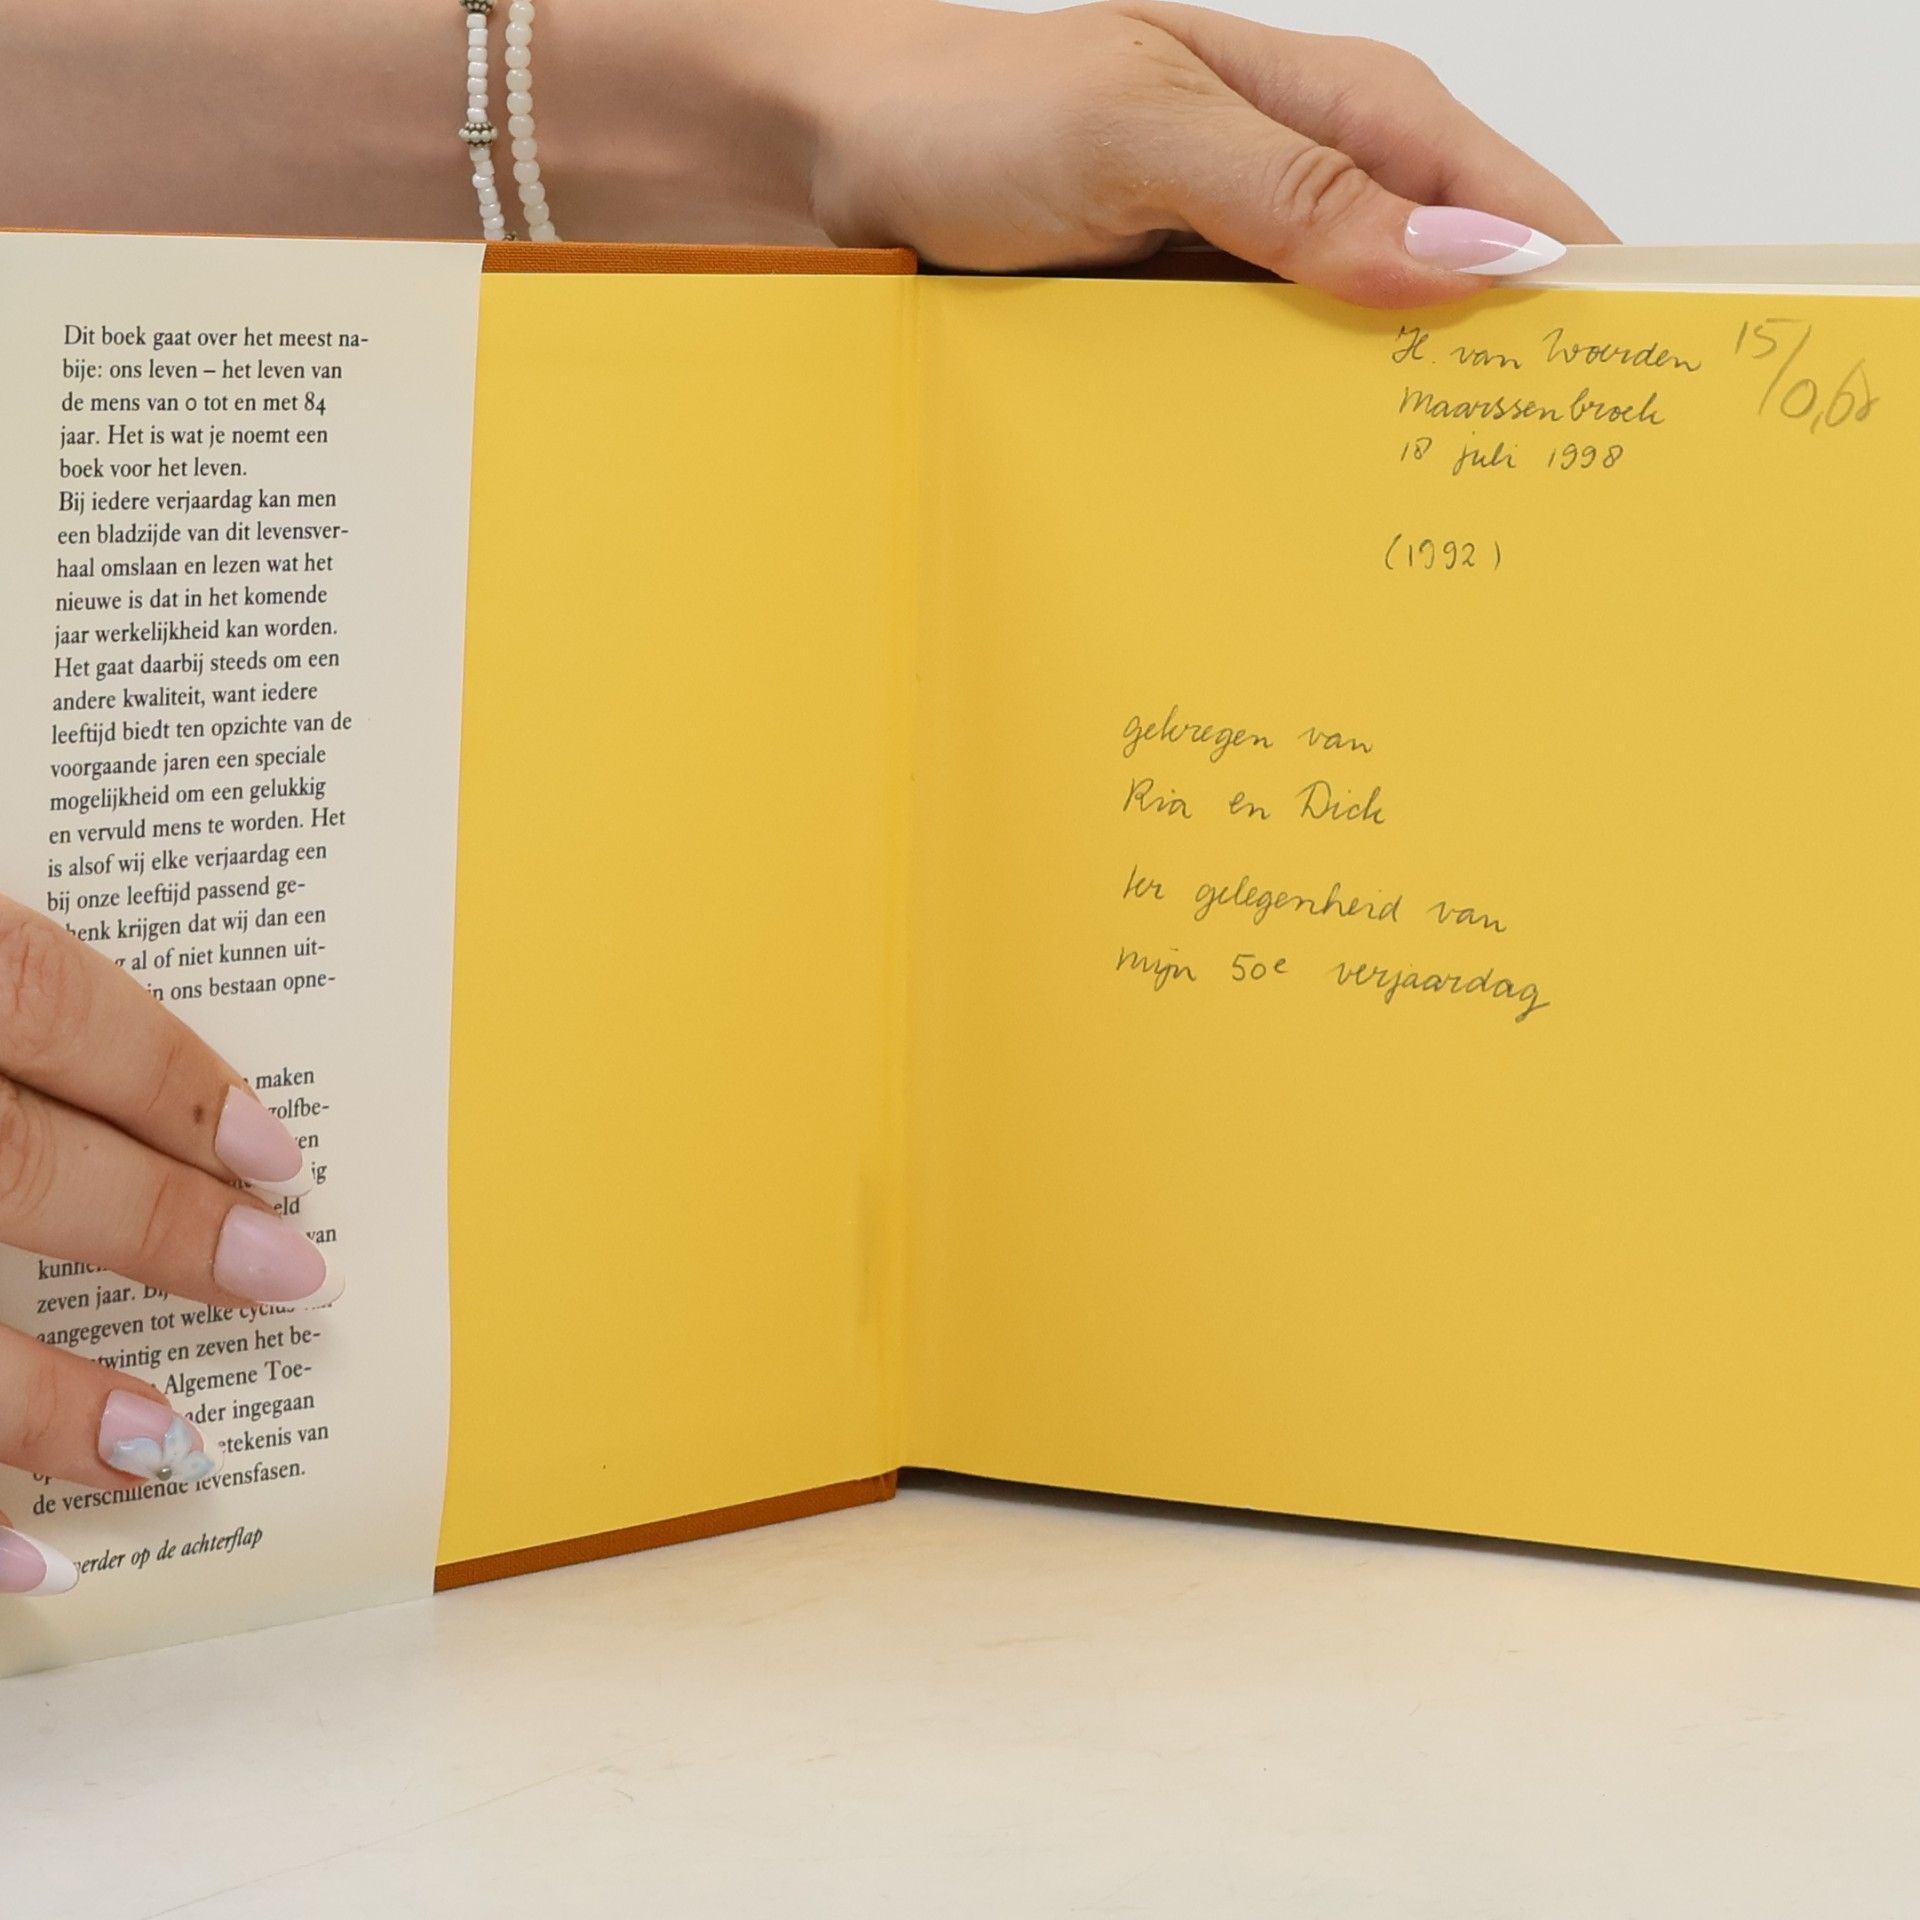 Dit boek gaat over het meest na-
bije: ons leven – het leven van
de mens van 0 tot en met 84
jaar. Het is wat je noemt een
boek voor het leven.
Bij iedere verjaardag kan men
een bladzijde van dit levensver-
haal omslaan en lezen wat het
nieuwe is dat in het komende
jaar werkelijkheid kan worden.
Het gaat daarbij steeds om een
andere kwaliteit, want iedere
leeftijd biedt ten opzichte van de
voorgaande jaren een speciale
mogelijkheid om een gelukkig
en vervuld mens te worden. Het
is alsof wij elke verjaardag een
bij onze leeftijd passend ge-
krijgen dat wij dan een
al of niet kunnen uit-
in ons bestaan opne-
maken
van
zeven jaar.
aangegeven tot welke
twintig en zeven het be-
Algemene Toe-
ingegaan
van
de verschillende levensfasen.
op de achterflap
H. van Woerden
Maarssenbroek
18 juli 1998
15/0,68
(1992)
gekregen van
Ria en Dick
ter gelegenheid van
mijn 50e verjaardag